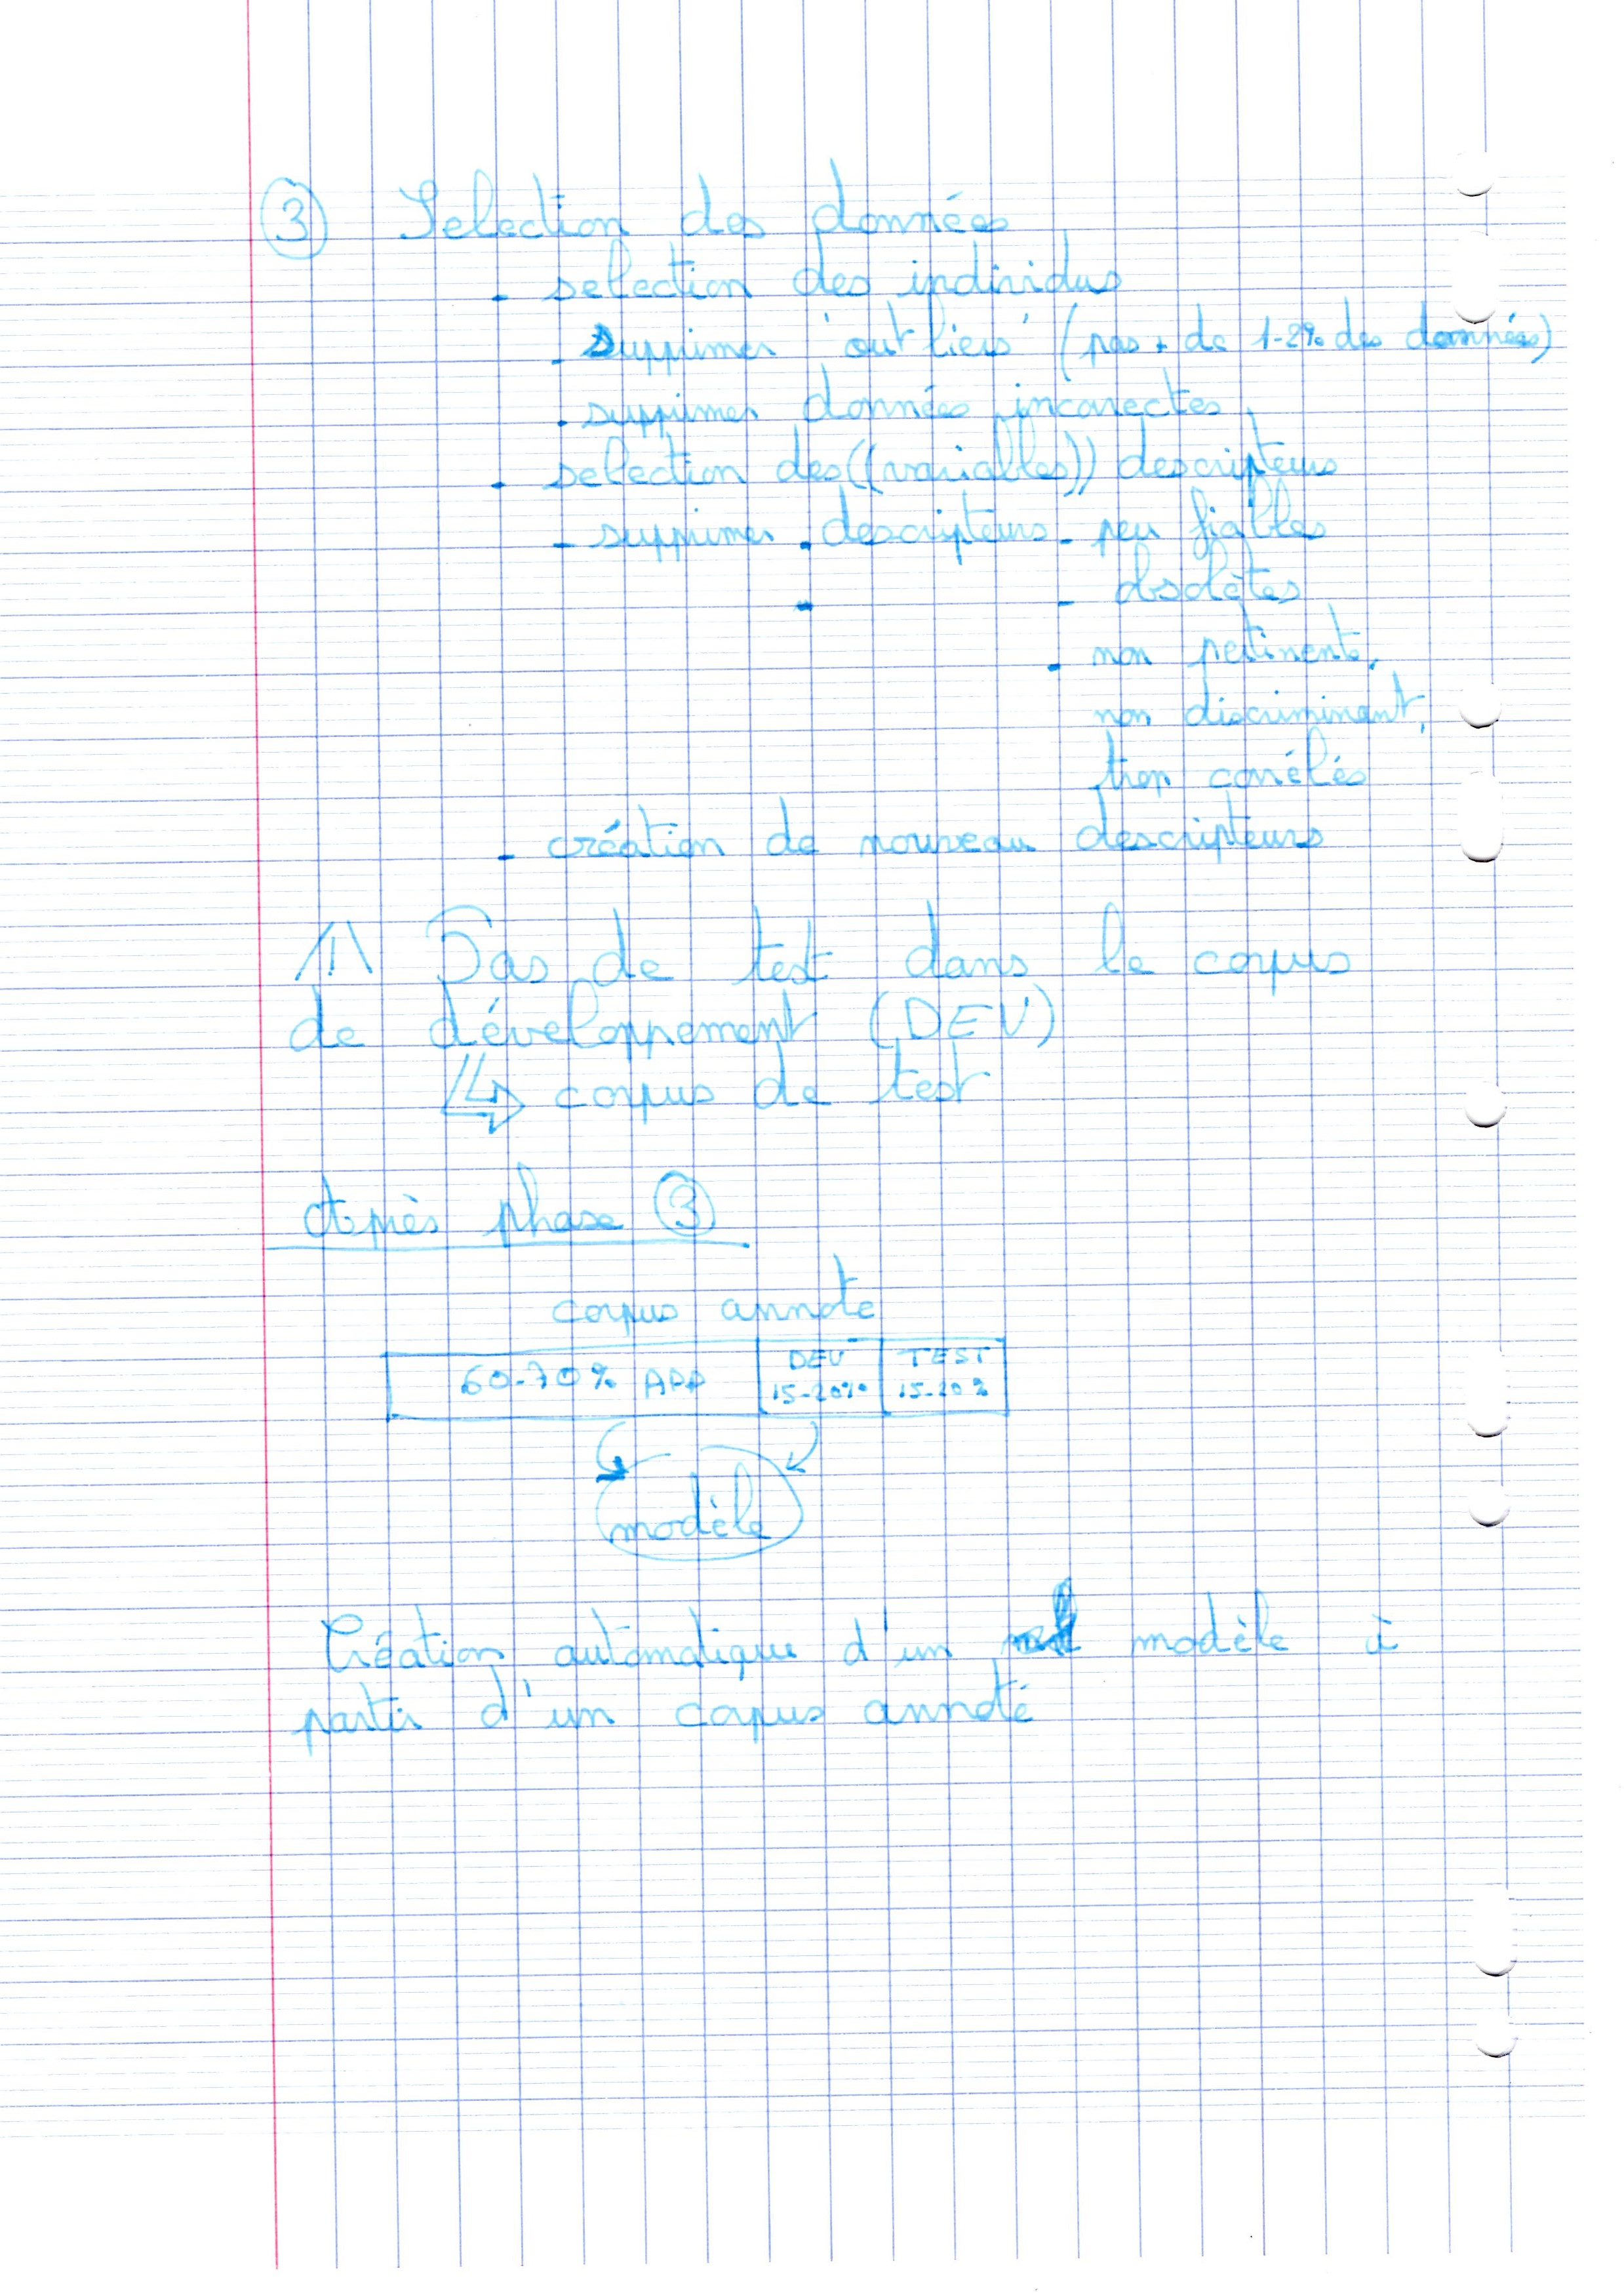 ③ Selection des données
- selection des individus
- supprimer 'outliers' (pas + de 1-2% des données)
- supprimer données incorrectes
- selection des ((variables)) descripteurs
- supprimer . descripteurs - peu fiables
- - obsolètes
- non pertinents,
non discriminant,
trop corrélés
- création de nouveau descripteurs
/!\ Pas de test dans le corpus
de développement (DEV)
↳ corpus de test
Après phase ③
corpus annoté
60-70% APP
DEV
15-20%
TEST
15-20%
modèle
Création automatique d'un modèle à
partir d'un corpus annoté